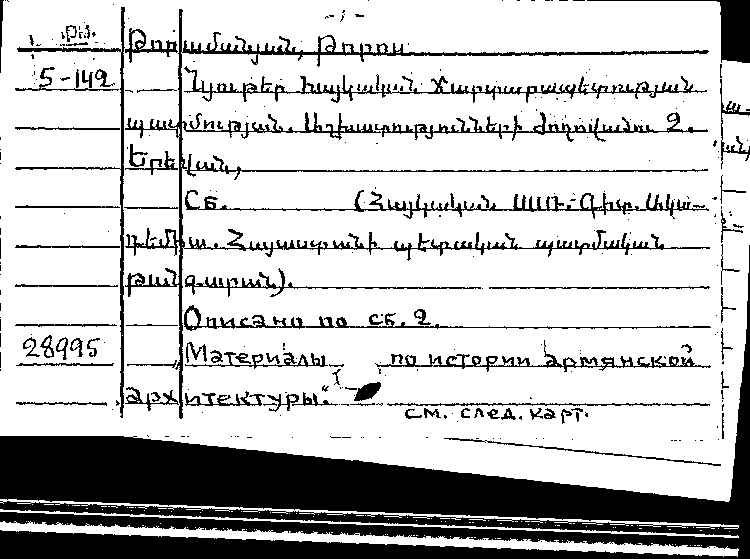 - 1 -
Թորամանյան, Թորոս
5-142
Նյութեր հայկական ճարտարապետության
պատմության. Աշխատությունների ժողովածու 2.
Երեվան,
Сб. (Հայկական ՍՍՌ. Գիտ. Ակա-
դեմիա. Հայաստանի պետական պատմական
թանգարան).
Описано по сб. 2.
28995
„Материалы по истории армянской
архитектуры".
см. след. карт.